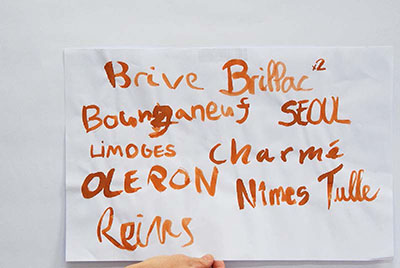 Brive Brillac x2
Bourganeuf SEOUL
LIMOGES Charmé
OLERON Nîmes Tulle
Reims